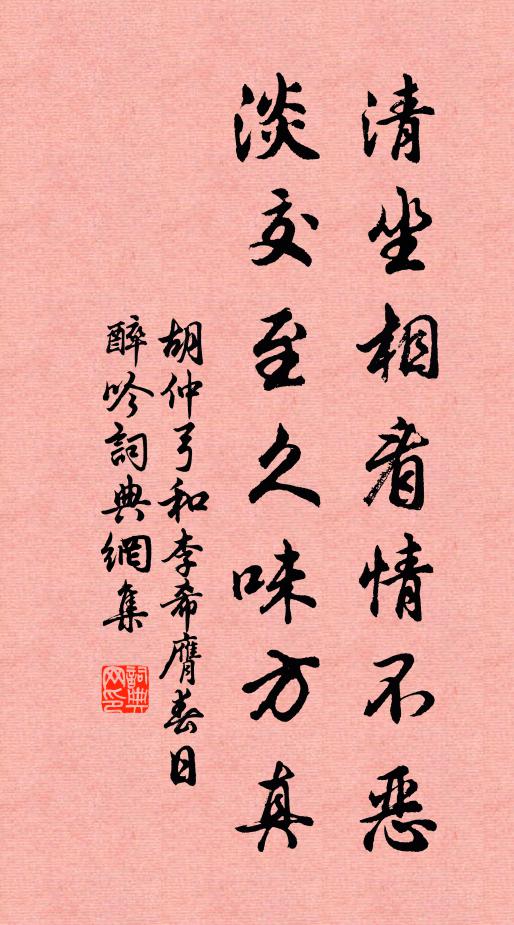 清坐相看情不恶
淡交至久味方真
胡仲弓和李希膺春日
醉吟詞典網集
詞典网印